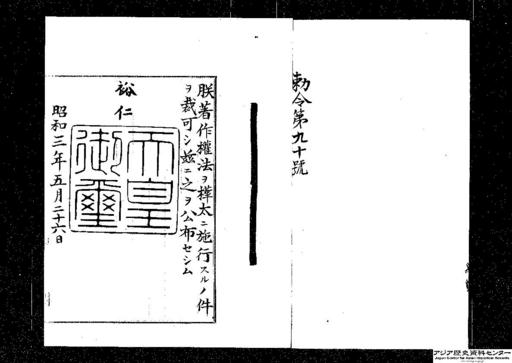 勅令第九十號
朕著作權法ヲ樺太ニ施行スルノ件
ヲ裁可シ玆ニ之ヲ公布セシム
裕仁
天皇
御璽
昭和三年五月二十六日
アジア歴史資料センター
Japan Center for Asian Historical Records